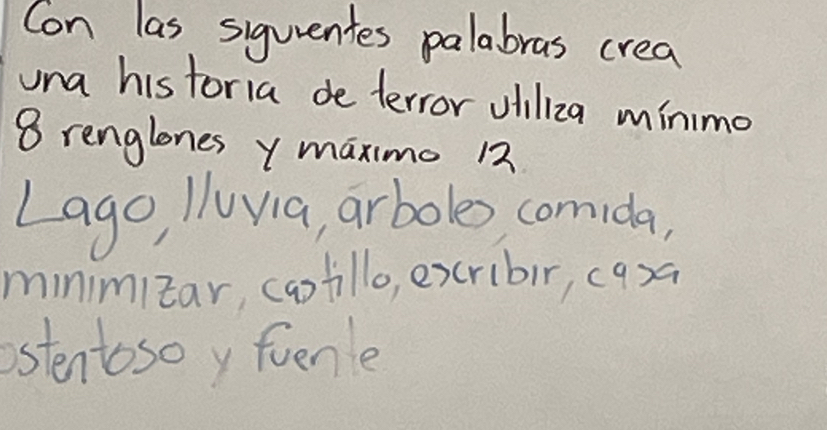 Con las siguientes palabras crea
una historia de terror utiliza mínimo
8 renglones y máximo 12
Lago, lluvia, árboles, comida,
minimizar, castillo, escribir, casa
ostentoso y fuente